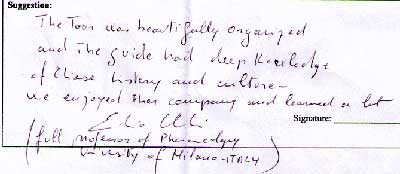 Suggestion:
The Tour was beautifully organized
and the guide had deep knowledge
of Chiese history and culture -
we enjoyed ther company and learned a lot
Signature:
(full professor of
University of Milano - ITALY)